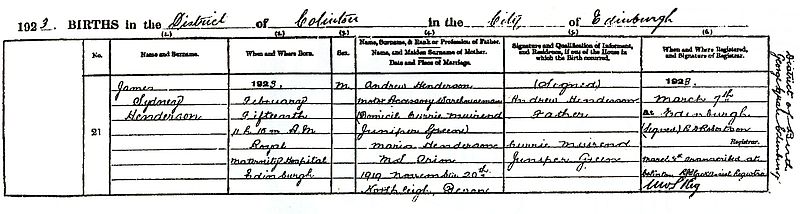 1923. BIRTHS in the District of Colinton in the City of Edinburgh
(1.) (2.) (3.) (4.) (5.) (6.)
No.
Name and Surname.
When and Where Born.
Sex.
Name, Surname, & Rank or Profession of Father.
Name, and Maiden Surname of Mother.
Date and Place of Marriage.
Signature and Qualification of Informant,
and Residence, if out of the House in
which the Birth occurred.
When and Where Registered,
and Signature of Registrar.
21
James
Sydney
Henderson
1923.
February
Fifteenth
11 h. 10 m A.M
Royal
Maternity Hospital
Edinburgh
M.
Andrew Henderson
Motor Accessory Warehouseman
(Domicile Currie Muirend
Juniper Green)
Maria Henderson
M.S. Orion
1919 November 20th
Northleigh, Devon
(Signed)
Andrew Henderson
Father
Currie Muirend
Juniper Green
1923.
March 7th
at Edinburgh
(Signed)
Registrar.
at
Colinton
Registrar
District of
Edinburgh